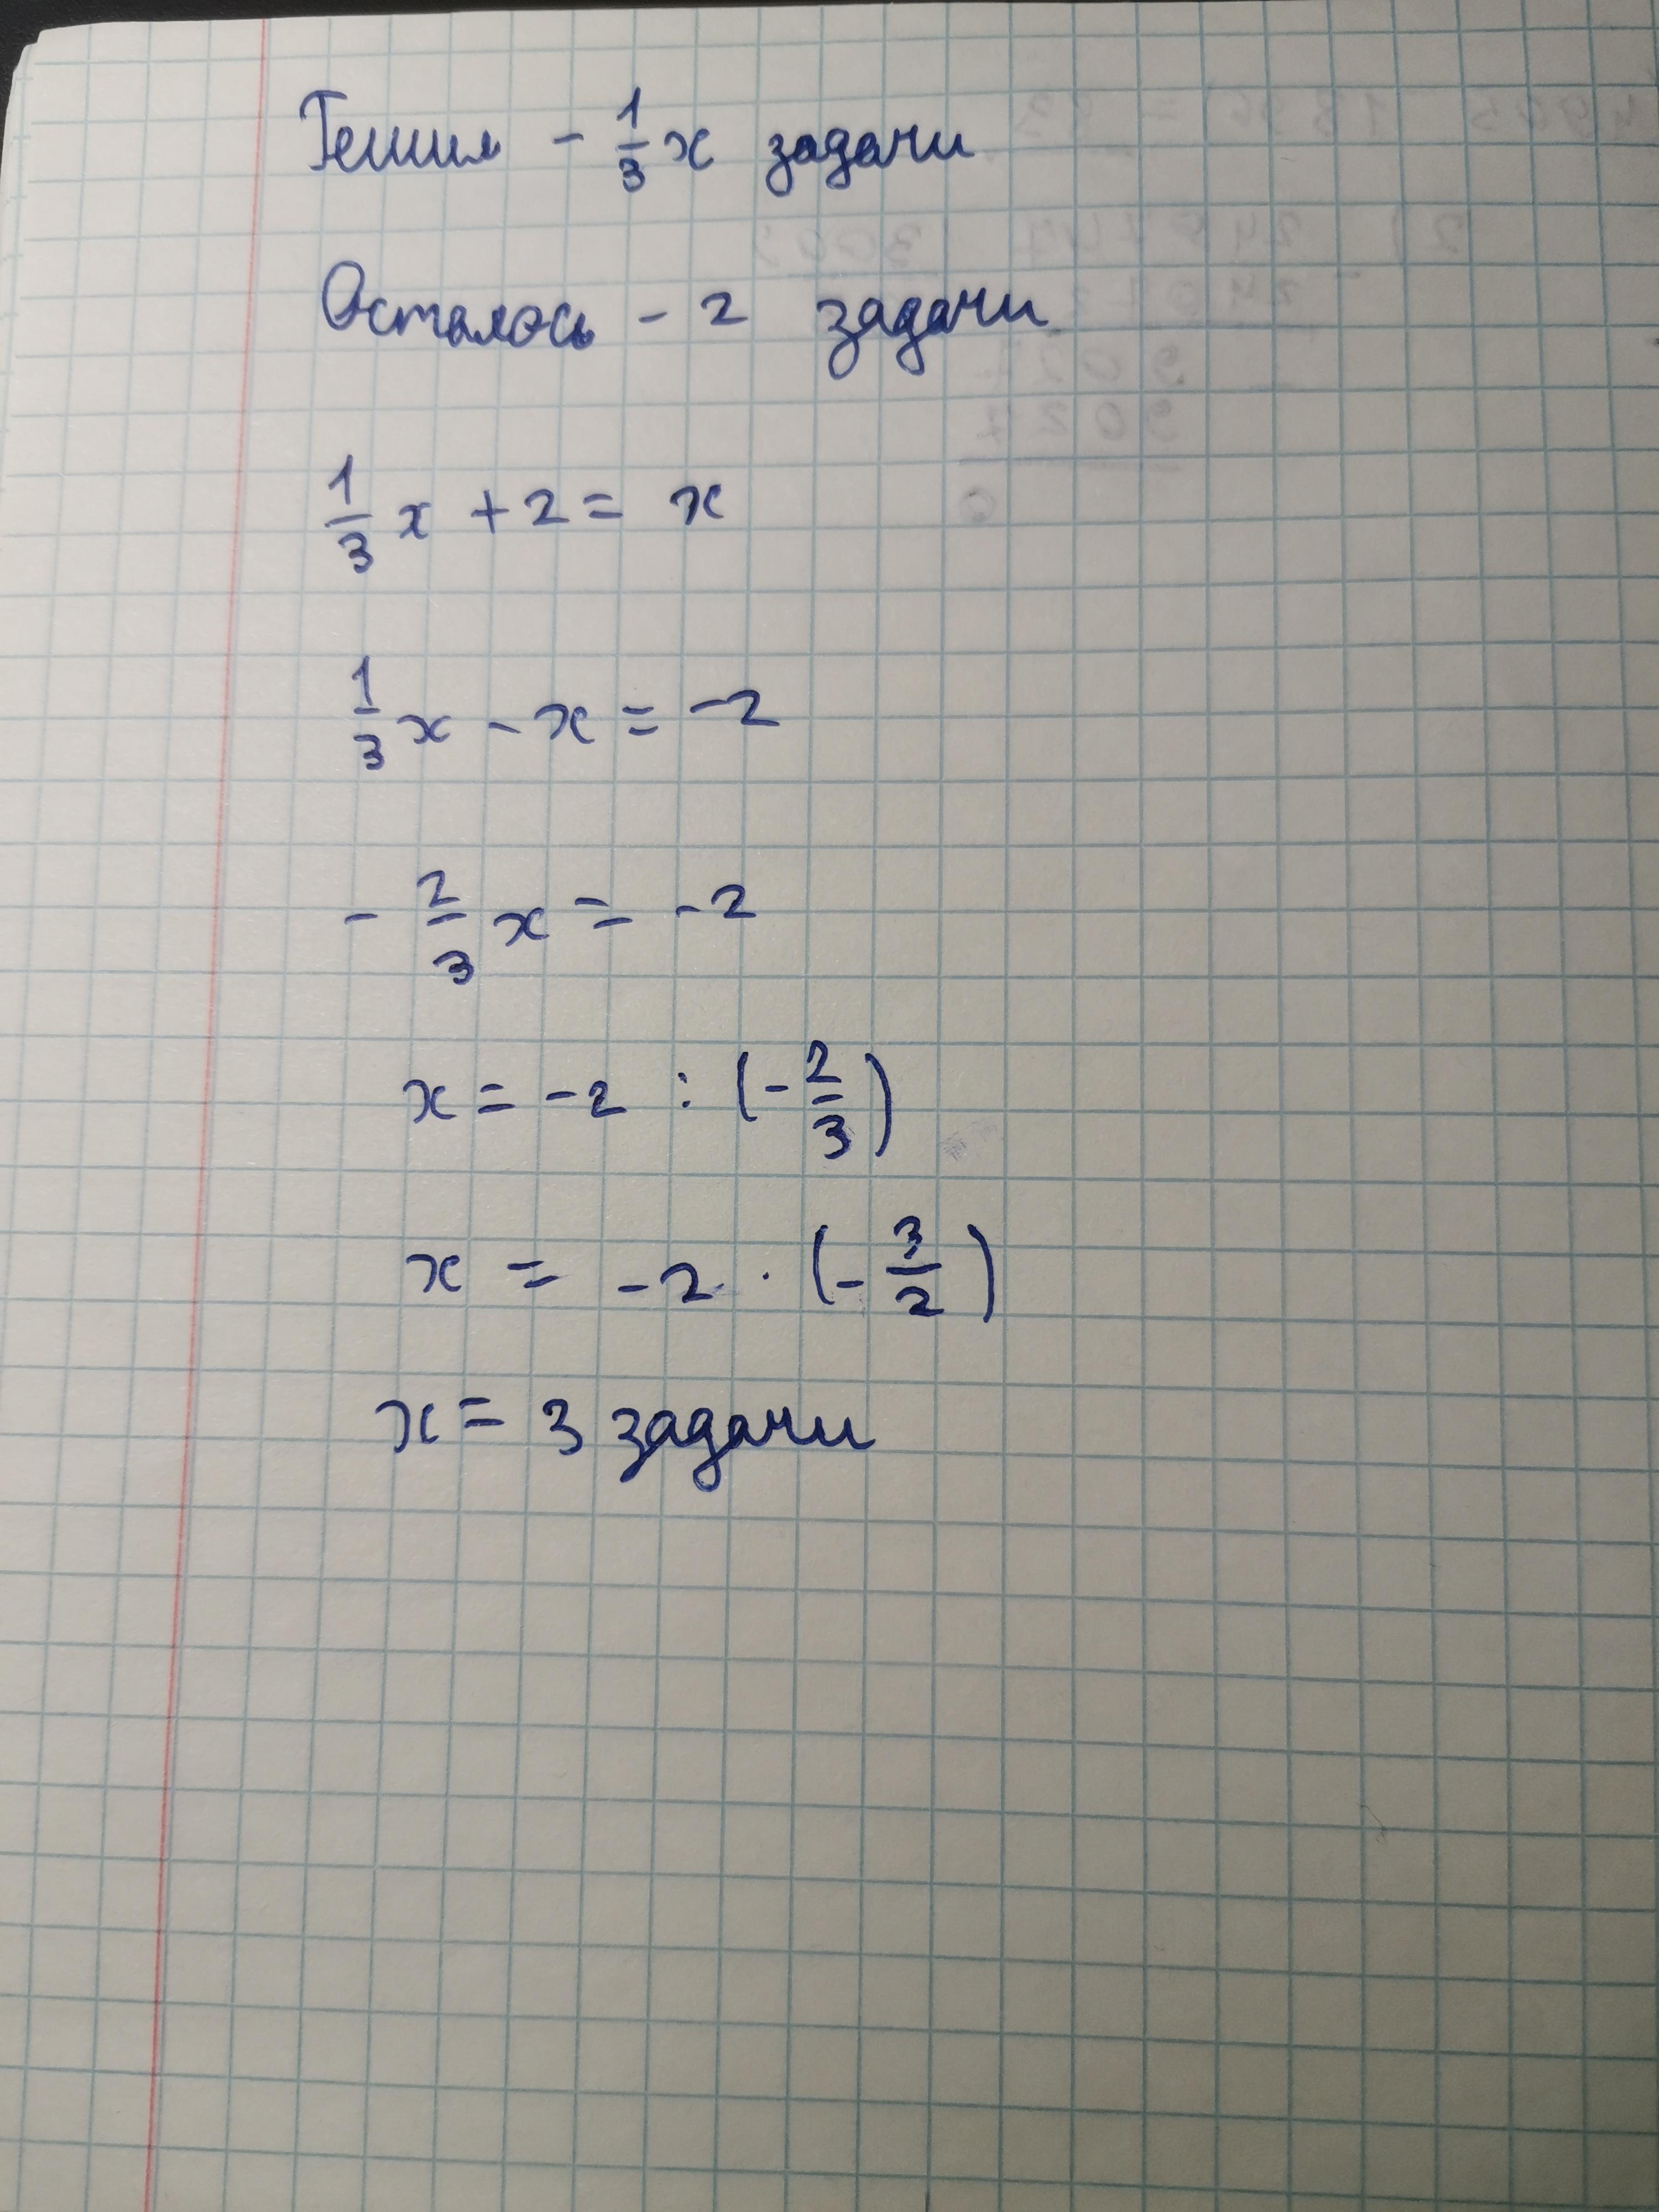 Решил - 1/3 x задачи
Осталось - 2 задачи
1/3 x + 2 = x
1/3 x - x = -2
- 2/3 x = -2
x = -2 : (- 2/3)
x = -2 · (- 3/2)
x = 3 задачи